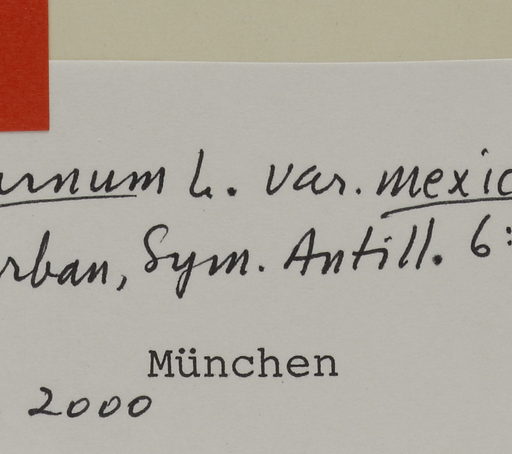 urnum L. var. mexic
rban, Sym. Antill. 6:
München
2000